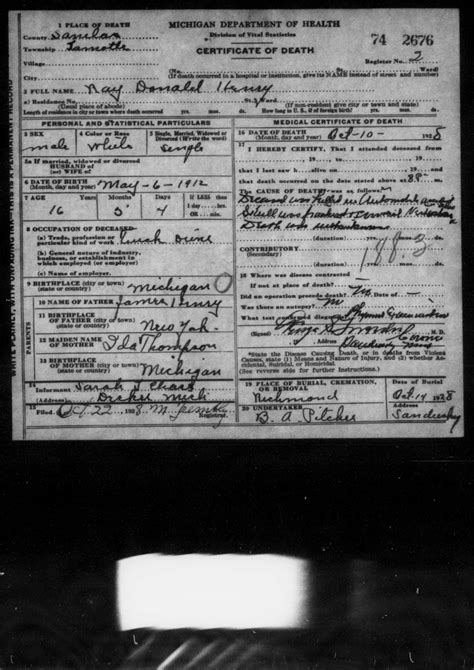 1 PLACE OF DEATH
County Sanilac
Township Lamotte
Village
City
MICHIGAN DEPARTMENT OF HEALTH
Division of Vital Statistics
CERTIFICATE OF DEATH
74 2676
Register No. 2
(If death occurred in a hospital or institution, give its NAME instead of street and number)
2 FULL NAME Ray Donald Henry
(a) Residence No. St. Ward
(Usual place of abode) (If non-resident give city or town and state)
Length of residence in city or town where death occurred yrs. mos. ds. How long in U. S., if of foreign birth? yrs. mos. ds.
PERSONAL AND STATISTICAL PARTICULARS
3 SEX
male
4 Color or Race
White
5 Single, Married, Widowed or Divorced (Write the word)
single
5a If married, widowed or divorced
HUSBAND of
(or) WIFE of
6 DATE OF BIRTH (Month, day and year) May-6-1912
7 AGE Years Months Days If LESS than
16 5 4
8 OCCUPATION OF DECEASED
(a) Trade, profession or particular kind of work
(b) General nature of industry, business, or establishment in which employed (or employer)
(c) Name of employer
9 BIRTHPLACE (city or town) Michigan
(state or country)
PARENTS
10 NAME OF FATHER James Henry
11 BIRTHPLACE OF FATHER (city or town)
(state or country) New York
12 MAIDEN NAME OF MOTHER Ida Thompson
13 BIRTHPLACE OF MOTHER (city or town)
(state or country) Michigan
14 Informant Sarah J.
(Address) Mich
15 Filed Oct 22, 1928
Registrar.
MEDICAL CERTIFICATE OF DEATH
16 DATE OF DEATH (Month, day and year) Oct-10- 1928
17 I HEREBY CERTIFY, That I attended deceased from
, 19 , to , 19
that I last saw h alive on , 19
and that death occurred on the date stated above at
The CAUSE OF DEATH was as follows:
Deceased was killed in Automobile
Skull was fractured
Death was
CONTRIBUTORY
(Secondary)
18 Where was disease contracted
if not at place of death?
Did an operation precede death? No
Was there an autopsy? No
What test confirmed diagnosis? Physical Examination
(Signed) M. D.
, Address
*State the Disease Causing Death, or in deaths from Violent Causes, state (1) Means and Nature of Injury, and (2) whether Accidental, Suicidal, or Homicidal
(See reverse side for further Instructions.)
19 PLACE OF BURIAL, CREMATION, OR REMOVAL
Richmond
Date of Burial
Oct 14 1928
20 UNDERTAKER
B. A. Pitcher
Address
Sandusky